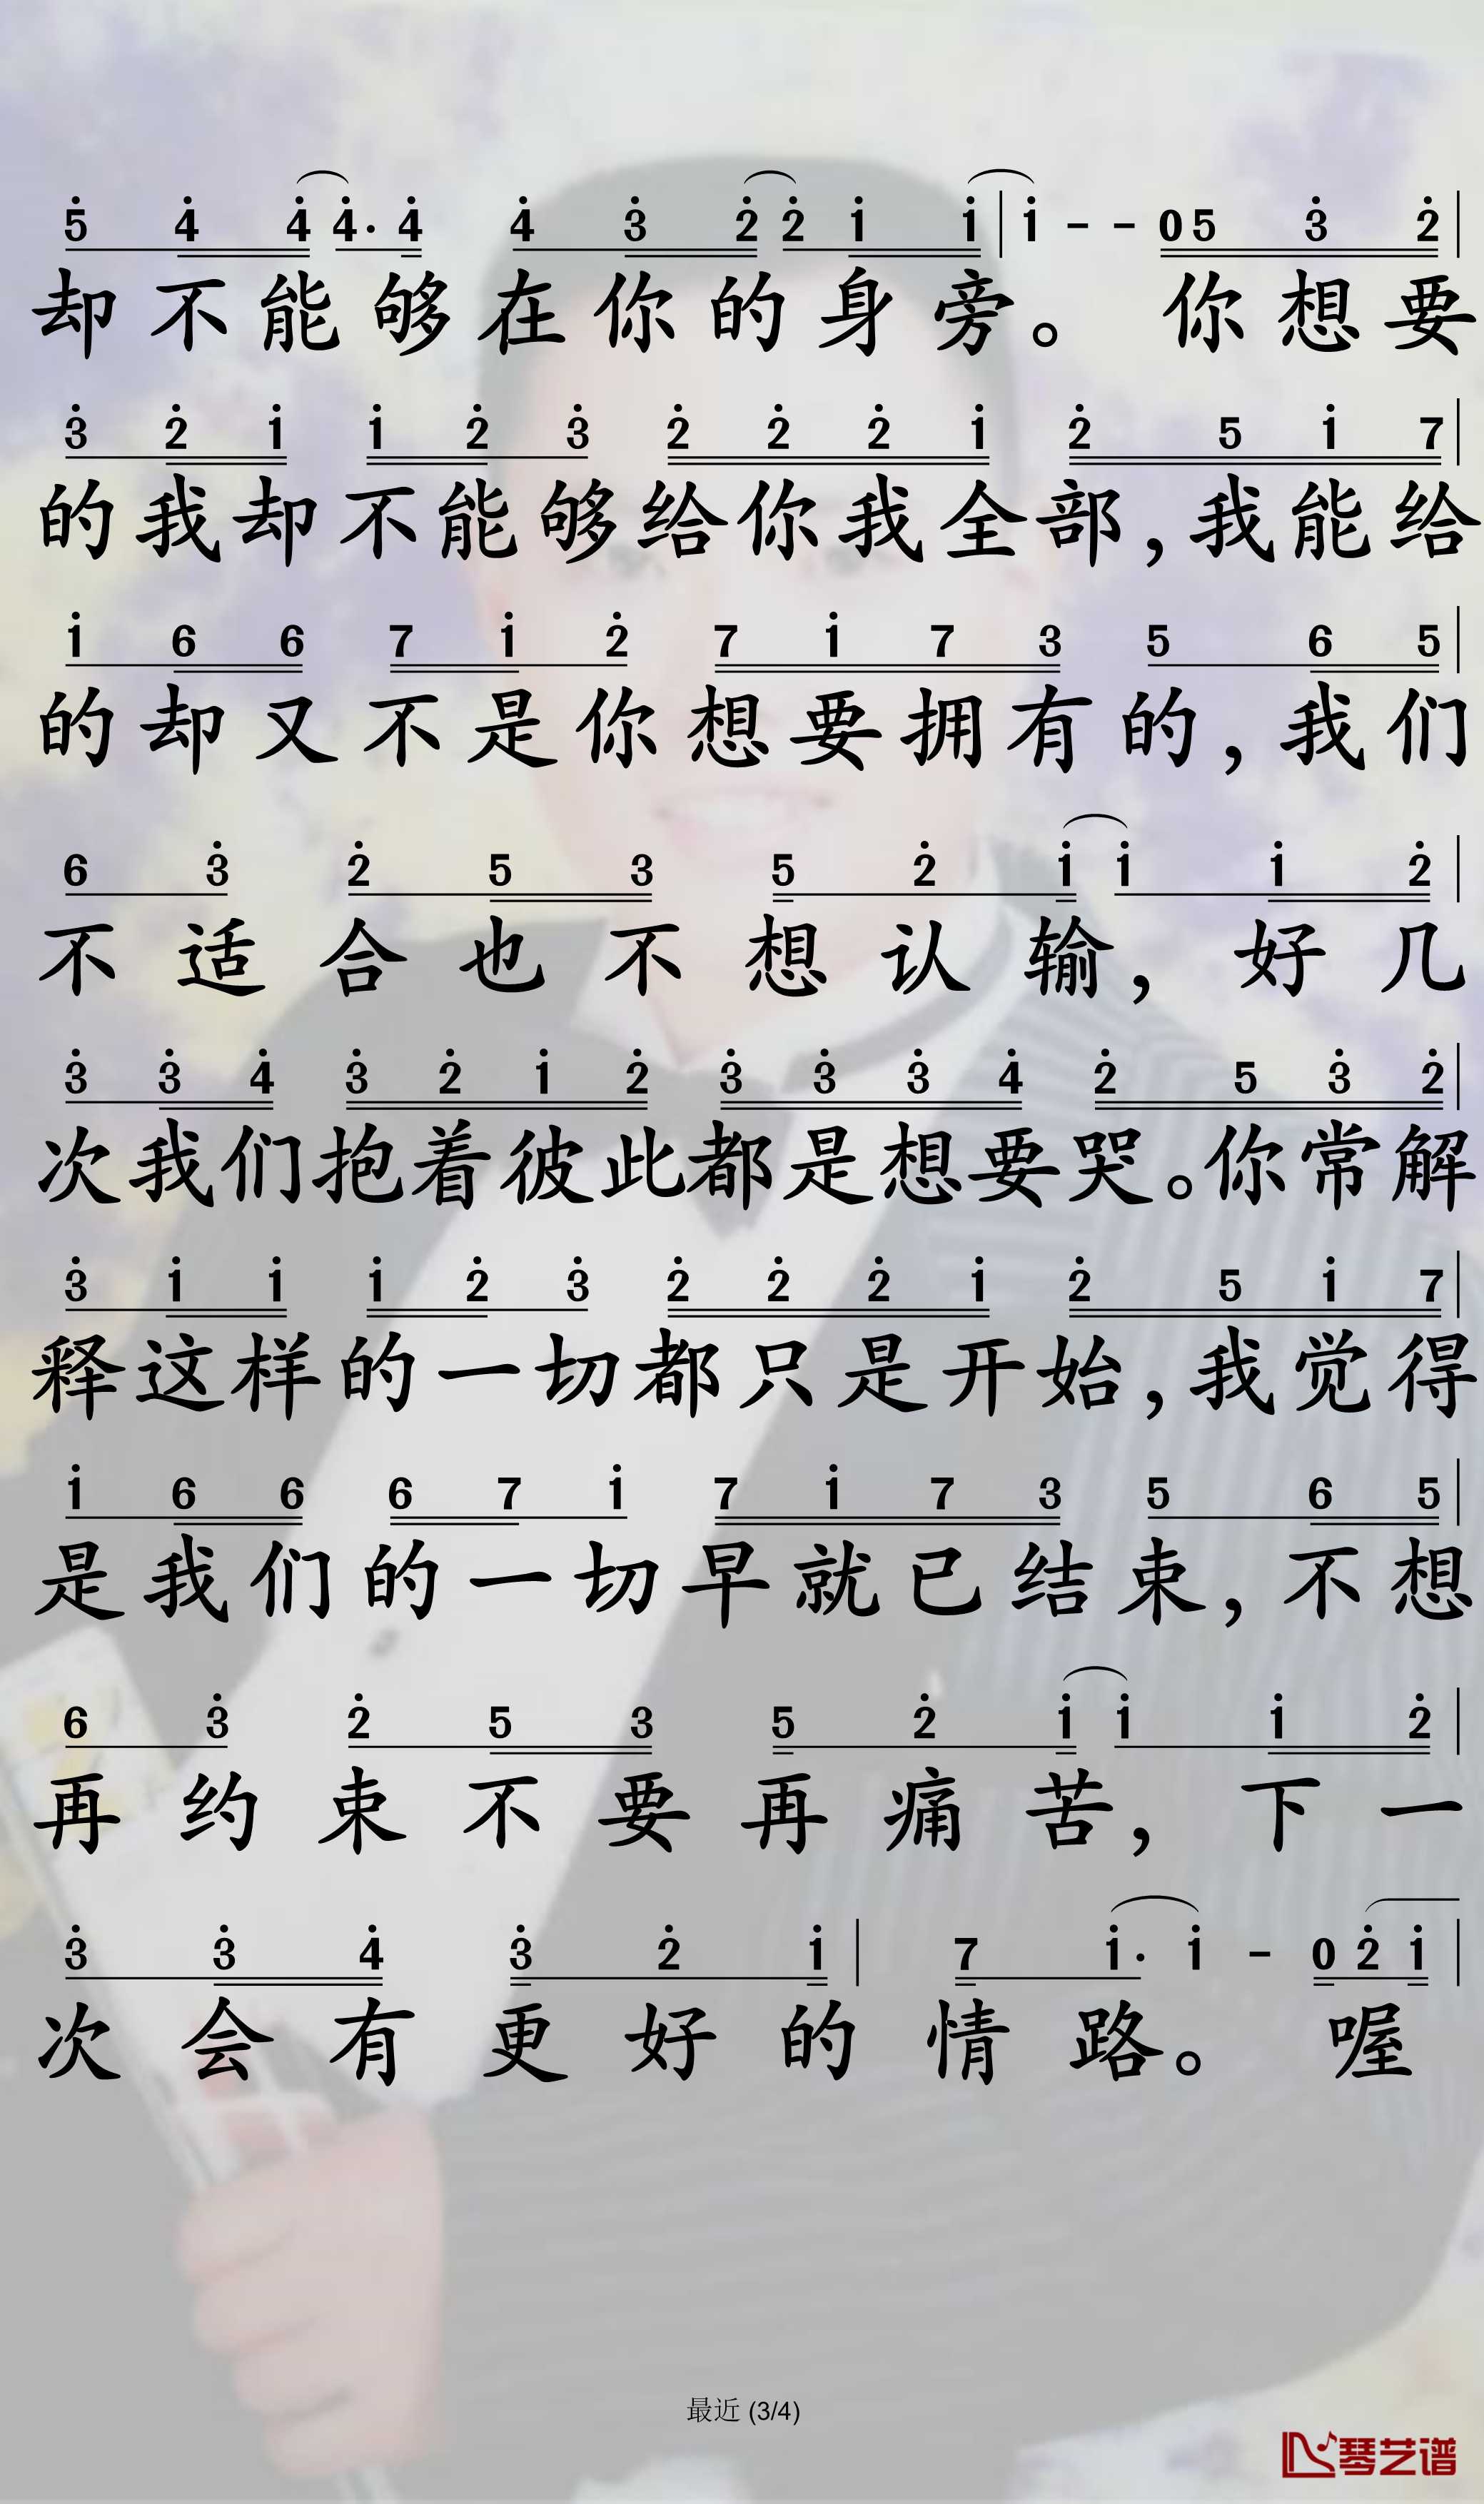 5 4 4 4· 4 4 3 2 2 1 1 | 1 - - 0 5 3 2 |
却不能够在你的身旁。你想要
3 2 1 1 2 3 2 2 2 1 2 5 1 7 |
的我却不能够给你我全部,我能给
1 6 6 7 1 2 7 1 7 3 5 6 5 |
的却又不是你想要拥有的,我们
6 3 2 5 3 5 2 1 1 1 2 |
不适合也不想认输,好几
3 3 4 3 2 1 2 3 3 3 4 2 5 3 2 |
次我们抱着彼此都是想要哭。你常解
3 1 1 1 2 3 2 2 2 1 2 5 1 7 |
释这样的一切都只是开始,我觉得
1 6 6 6 7 1 7 1 7 3 5 6 5 |
是我们的一切早就已结束,不想
6 3 2 5 3 5 2 1 1 1 2 |
再约束不要再痛苦,下一
3 3 4 3 2 1 | 7 1· 1 - 0 2 1 |
次会有更好的情路。喔
最近 (3/4)
琴艺谱